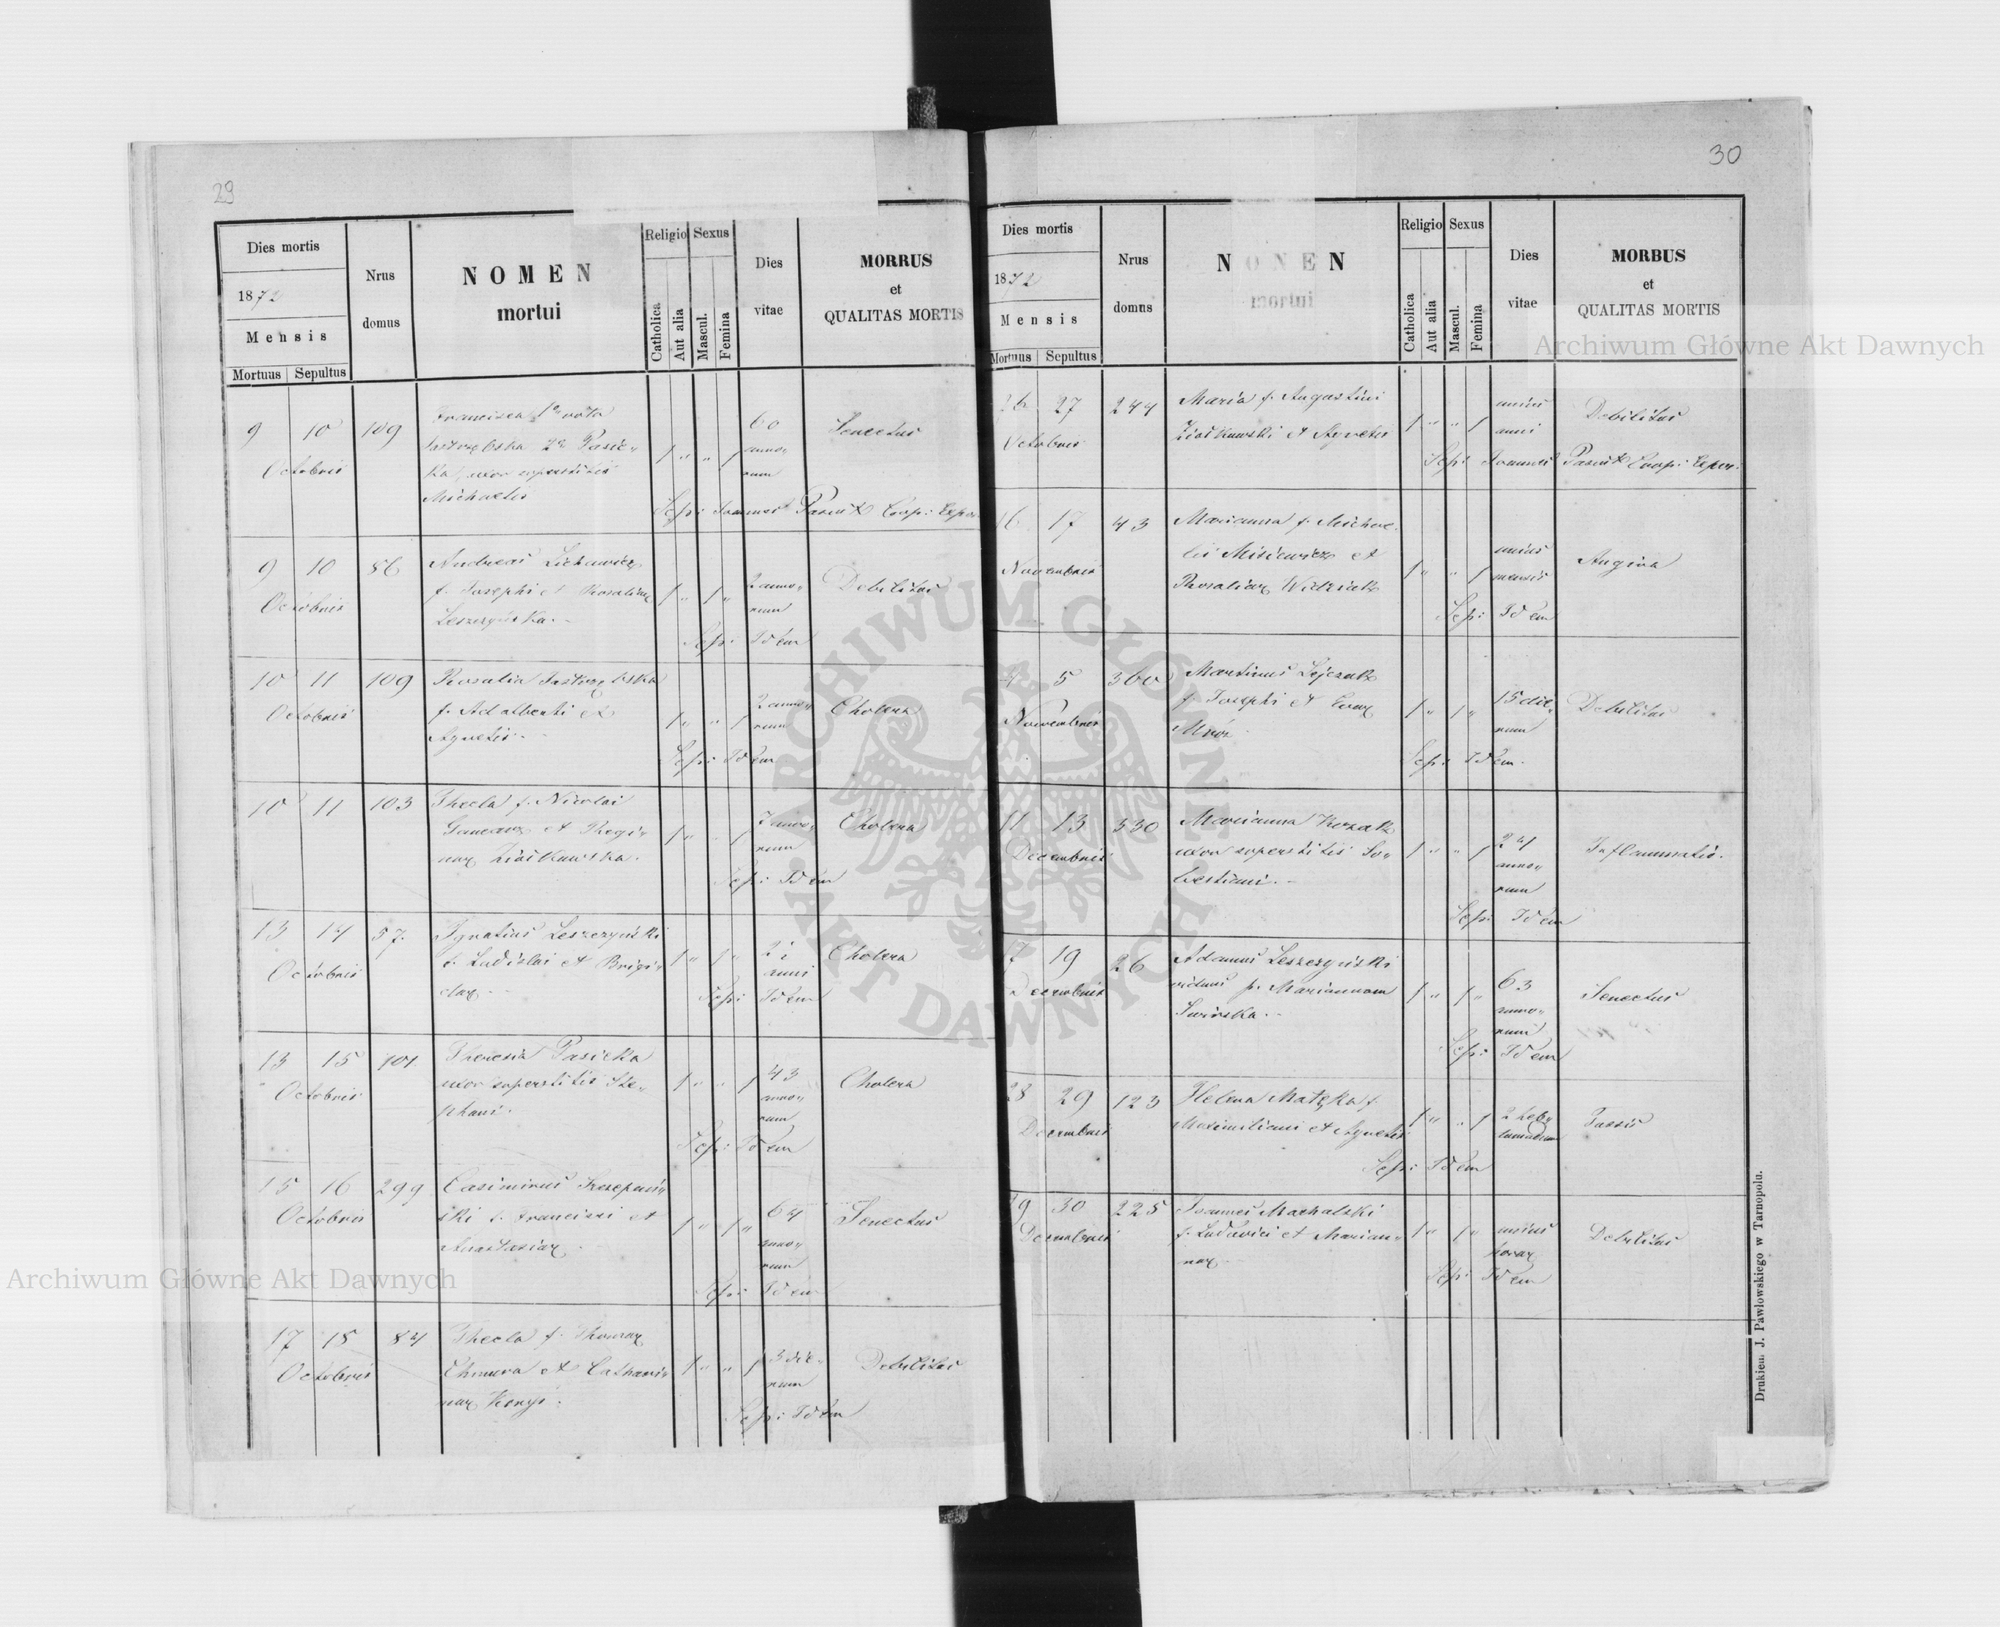 29
Dies mortis
1872
Mensis
Mortuus Sepultus
Nrus
domus
NOMEN
mortui
Religio Sexus
Catholica
Aut alia
Mascul.
Femina
Dies
vitae
MORRUS
et
QUALITAS MORTIS
9 10 109 Francisca 1o voto 60 Senectus
Octobris Jastrzębska 2o Pasic- 1 " " 1 anno-
ka, uxor superstitis rum
Michaelis
Sepi: Joannes Coop: Expos:
9 10 86 Andreas Lichawicz 2 anno- Debilitas
Octobris f. Josephi et Rosaliae 1 " 1 " rum
Leszczyńska.
Sepi: Idem
10 11 109 Rosalia Jastrzębska 2 anno- Cholera
Octobris f. Adalberti et 1 " " 1 rum
Agnetis.
Sepi: Idem
10 11 103 Thecla f. Nicolai anno- Cholera
et Regi- 1 " " 1 rum
nae Ziółkowska.
Sepi: Idem
13 14 57. Ignatius Leszczyński 2 Cholera
Octobris f. Ladislai et Brigi- 1 " 1 " anni
dae.
Sepi: Idem
13 15 101 Theresia Pasicka 43 Cholera
Octobris uxor superstitis Ste- 1 " " 1 anno-
phani. rum
Sepi: Idem
15 16 299 Casimirus 64 Senectus
Octobris ski f. Francisci et 1 " 1 " anno-
Anastasiae. rum
Sepi: Idem
17 18 84 Thecla f. Thomae 3 die- Debilitas
Octobris Chmura et Cathari- 1 " " 1 rum
nae
Sepi: Idem
30
Dies mortis
1872
Mensis
Mortuus Sepultus
Nrus
domus
NONEN
mortui
Religio Sexus
Catholica
Aut alia
Mascul.
Femina
Dies
vitae
MORBUS
et
QUALITAS MORTIS
26 27 244 Maria f. Augustini unius Debilitas
Octobris Ziółkowski et Agnetis 1 " " 1 anni
Sepi: Joannes Coop: Expos:
16 17 43 Marianna f. Michae- unius Angina
Novembris lis Misiewicz et 1 " " 1 mensis
Rosaliae
Sepi: Idem
4 5 360 Martinus 15 die- Debilitas
Novembris f. Josephi et Evae 1 " 1 " rum
Mróz
Sepi: Idem.
11 13 330 Marianna Kozak 24 Inflammatio.
Decembris uxor superstitis Se- 1 " " 1 anno-
bastiani. rum
Sepi: Idem
17 19 26 Adamus Leszczyński 63 Senectus
Decembris viduus p. Mariannam 1 " 1 " anno-
rum
Sepi: Idem
28 29 123 Helena Matęka f. 2 heb- Tussis
Decembris Maximiliani et Agnetis 1 " " 1 domadum
Sepi: Idem
29 30 225 Joannes Machalski unius Debilitas
Decembris f. Ludovici et Marian- 1 " 1 " horae
nae
Sepi: Idem
Drukiem J. Pawłowskiego w Tarnopolu.
Archiwum Główne Akt Dawnych
Archiwum Główne Akt Dawnych
ARCHIWUM GŁÓWNE AKT DAWNYCH